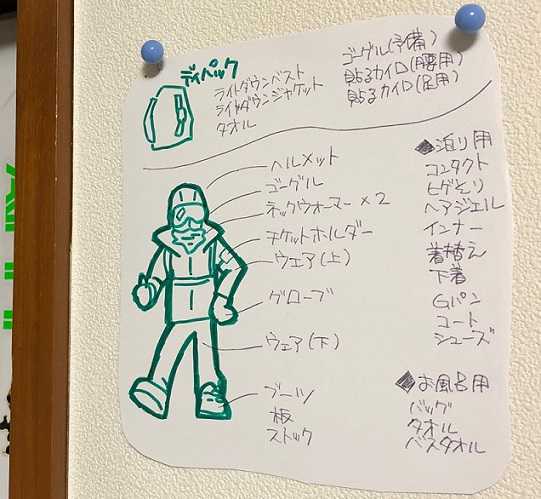 デイパック
ライトダウンベスト
ライトダウンジャケット
タオル
ゴーグル(予備)
貼るカイロ(腰用)
貼るカイロ(足用)
ヘルメット
ゴーグル
ネックウォーマー×2
チケットホルダー
ウェア(上)
グローブ
ウェア(下)
ブーツ
板
ストック
◆泊り用
コンタクト
ヒゲそり
ヘアジェル
インナー
着替え
下着
Gパン
コート
シューズ
◆お風呂用
バッグ
タオル
バスタオル